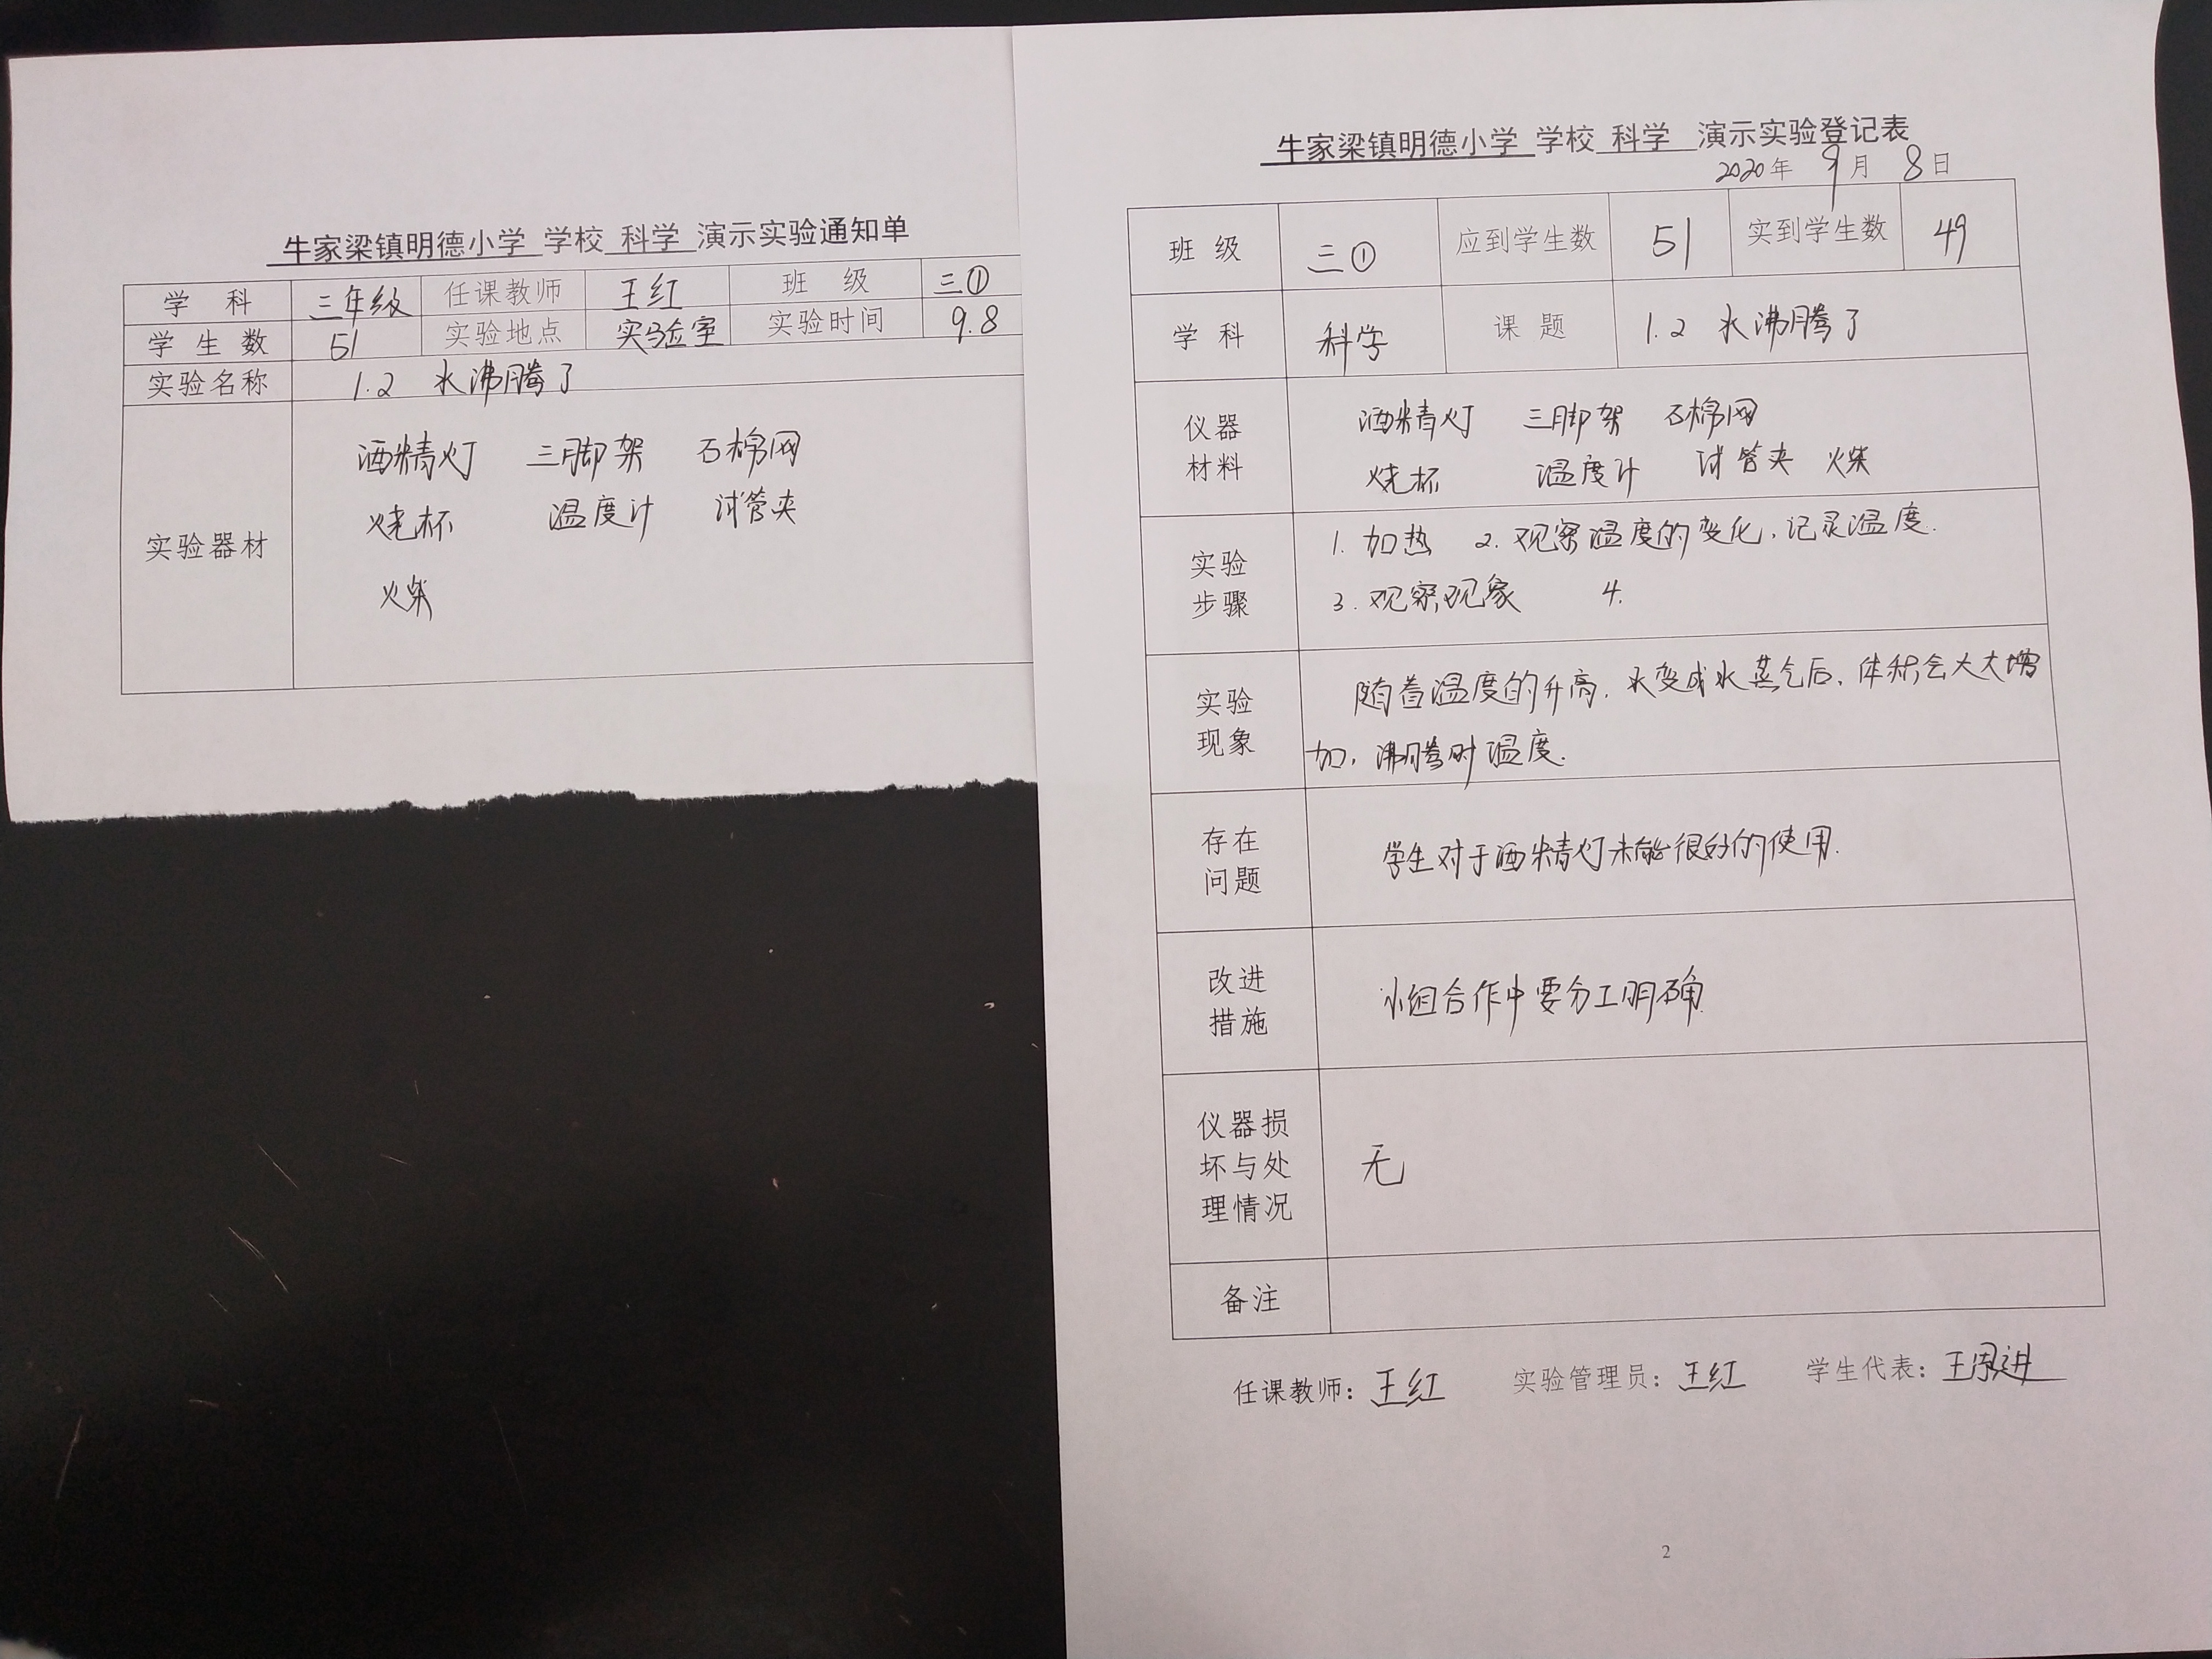 牛家梁镇明德小学 学校 科学 演示实验通知单
学 科 三年级 任课教师 王红 班 级 三①
学 生 数 51 实验地点 实验室 实验时间 9.8
实验名称 1.2 水沸腾了
实验器材
酒精灯 三脚架 石棉网
烧杯 温度计 试管夹
火柴
牛家梁镇明德小学 学校 科学 演示实验登记表
2020年 9月 8日
班 级 三① 应到学生数 51 实到学生数 49
学 科 科学 课 题 1.2 水沸腾了
仪器
材料
酒精灯 三脚架 石棉网
烧杯 温度计 试管夹 火柴
实验
步骤
1. 加热 2. 观察温度的变化,记录温度.
3. 观察现象 4.
实验
现象
随着温度的升高,水变成水蒸气后,体积会大大增
加,沸腾时温度.
存在
问题
学生对于酒精灯未能很好的使用.
改进
措施
小组合作中要分工明确.
仪器损
坏与处
理情况
无
备注
任课教师:王红 实验管理员:王红 学生代表:王
2